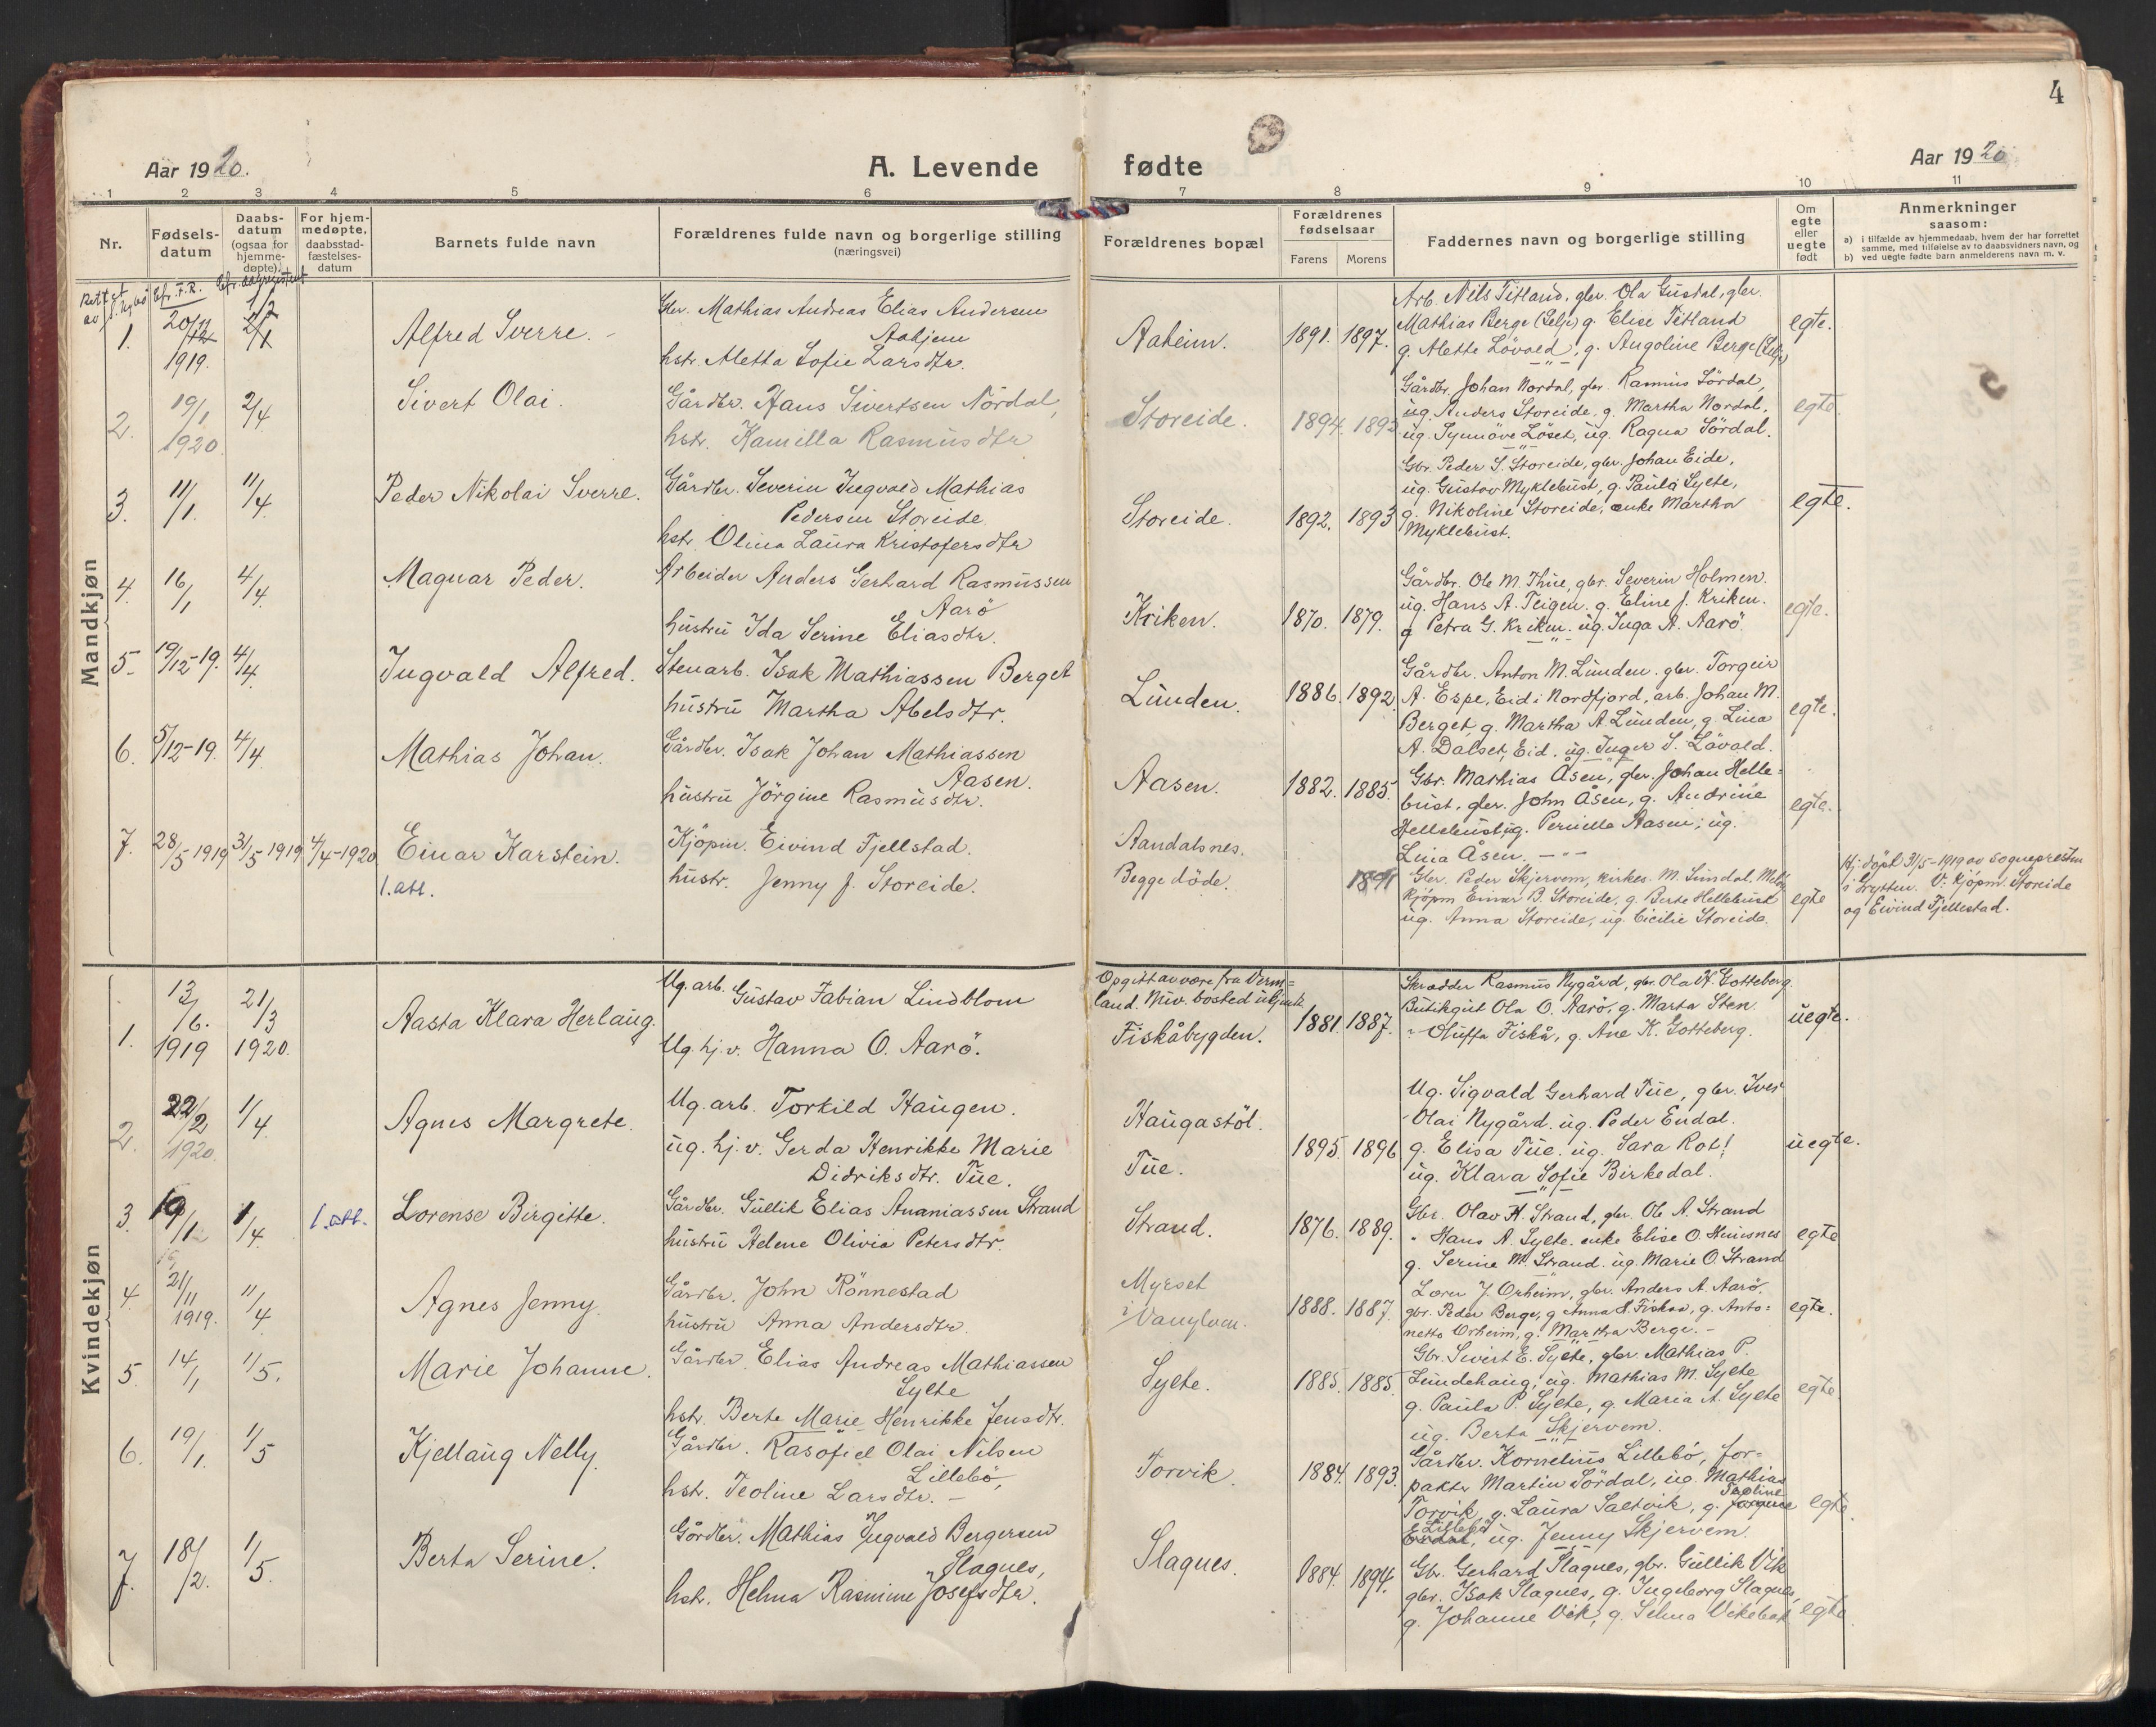 4
Aar 1920.
A. Levende fødte
Aar 1920
1 2 3 4 5 6 7 8 9 10 11
Nr.
Fødsels-
datum
Daabs-
datum
(ogsaa for
hjemme-
døpte).
For hjem-
medøpte,
daabsstad-
fæstelses-
datum
Barnets fulde navn
Forældrenes fulde navn og borgerlige stilling
(næringsvei)
Forældrenes bopæl
Forældrenes
fødselsaar
Farens Morens
Faddernes navn og borgerlige stilling
Om
egte
eller
uegte
født
Anmerkninger
saasom:
a) i tilfælde av hjemmedaab, hvem der har forrettet
samme, med tilføielse av to daabsvidners navn, og
b) ved uegte fødte barn anmelderens navn m. v.
Mandkjøn
1.
20/12
1919.
2/1
Alfred Sverre. -
Gbr. Mathias Andreas Elias Andersen
Aahjem
hstr. Aletta Sofie Larsdtr.
Aaheim.
1891. 1897.
Arb. Nils Titland, gbr. Ola Gusdal, gbr.
Mathias Berge (Selje) g. Elise Titland
g. Alette Lövold, g. Angoline Berge (Selje)
egte.
2.
19/1
1920.
2/4
Sivert Olai.
Gårdbr. Hans Sivertsen Nördal,
hstr. Kamilla Rasmusdtr
Storeide.
1894. 1892
Gårdbr. Johan Nordal, gbr. Rasmus Sördal,
ug. Anders Storeide, g. Martha Nordal,
ug. Synnöve Löset, ug. Ragna Sördal.
egte.
3.
11/1.
11/4.
Peder Nikolai Sverre.
Gårdbr. Severin Ingvald Mathias
Pedersen Storeide
hstr. Olina Laura Kristofersdtr
Storeide.
1892. 1893
Gbr. Peder S. Storeide, gbr. Johan Eide,
ug. Gustav Myklebust, g. Paula Sylte,
g. Nikoline Storeide, enke Martha
Myklebust.
egte.
4.
16/1
4/4.
Magnar Peder.
Arbeider Anders Gerhard Rasmussen
Aarö
hustru Ida Serine Eliasdtr.
Kriken.
1870. 1879.
Gårdbr. Ole M. Thue, gbr. Severin Holmen.
ug. Hans A. Teigen. g. Eline J. Kriken.
g. Petra G. Kriken. ug. Inga A. Aarö.
egte.
5.
19/12-19.
4/4.
Ingvald Alfred.
Stenarb. Isak Mathiassen Berget
hustru Martha Abelsdtr.
Lunden.
1886. 1892.
Gårdbr. Anton M. Lunden. gbr. Torgeir
A. Espe, Eid i Nordfjord, arb. Johan M.
Berget, g. Martha A. Lunden, g. Lina
A. Dalset, Eid. ug. Inger S. Lövold.
egte.
6.
5/12-19.
4/4
Mathias Johan.
Gårdbr. Isak Johan Mathiassen
Aasen.
hustru Jörgine Rasmusdtr.
Aasen.
1882. 1885.
Gbr. Mathias Åsen, gbr. Johan Helle-
bust, gbr. John Åsen, g. Andrine
Hellebust, g. Pernella Aasen, ug.
Lina Åsen. -"-
egte.
7.
28/5 1919
31/5 1919
4/4-1920
Einar Karstein.
1.att.
Kjöpm. Eivind Fjellstad.
hustr. Jenny J. Storeide.
Aandalsnes.
Begge döde.
1891
Gbr. Peder Skjervem, kirkes. M. Sundal,
Kjöpm Einar B. Storeide, g. Berte Hellebust
ug. Anna Storeide, ug. Cicilie Storeide.
egte
Hj. döpt 31/5-1919 av sognepresten
i Grytten. V: Kjöpm. Storeide
og Eivind Fjellestad.
Kvindekjøn
1.
13/6.
1919
21/3
1920.
Aasta Klara Herlaug.
Ug. arb. Gustav Fabian Lindblom
Ug. hj. v. Hanna O. Aarö.
Opgitt av vore fra Verm-
land. Nuv. bosted ukjent
Fiskåbygden.
1881. 1887.
Skrædder Rasmus Nygård, gbr. Ola H. Gotteberg.
Butikgut Ola O. Aarö, g. Marta Sten.
" Oluffa Fiskå, g. Ane K. Gotteberg.
uegte.
2.
22/2
1920.
1/4
Agnes Margrete.
Ug. arb. Torkild Haugen.
ug. hj. v. Gerda Henrikke Marie
Didriksdtr. Tue.
Haugastöl.
Tue.
1895. 1896
Ug. Sigvald Gerhard Tue, gbr. Iver
Olai Nygård. ug. Peder Endal.
g. Elisa Tue. ug. Sara Rot!
ug. Klara Sofie Birkedal.
uegte.
3.
1/4.
1.att.
Lorense Birgitte.
Gårdbr. Gullik Elias Ananiassen Strand
hustru Helene Olivia Petersdtr.
Strand.
1876. 1889.
Gbr. Olav A. Strand, gbr. Ole A. Strand
" Hans A. Sylte. enke Elise O.
g. Serine M. Strand. ug. Marie O. Strand
egte
4.
21/11
1919.
11/4
Agnes Jenny.
Gårdbr. John Rönnestad
hustru Anna Andersdtr.
Myrset
i Vanylven.
1888. 1887.
J. Orheim, gbr. Anders A. Aarö,
gbr. Peder Berge, g. Anna S. Fiskaa, g. Anto-
nette Orheim, g. Martha Berge. -
egte.
5.
14/1
1/5.
Marie Johanne.
Gårdbr. Elias Andreas Mathiassen
Sylte
hstr. Berte Marie Henrikke Jensdtr.
Sylte.
1885. 1885.
Gbr. Sivert E. Sylte, gbr. Mathias P.
Lundehaug, ug. Mathias M. Sylte
g. Paula P. Sylte, g. Maria A. Sylte
ug. Berta Skjervem.
egte.
6.
19/1.
1/5
Kjellaug Nelly.
Gårdbr. Rasofiel Olai Nilsen
Lillebö,
hstr. Teoline Larsdtr. -
Torvik.
1884. 1893.
Gårdbr. Kornelius Lillebö, for-
pakter Martin Sördal, ug. Mathias
Torvik, g. Laura Saltvik, g. Teoline
Lillebö, ug. Jenny Skjervem.
egte.
7.
18/2.
1/5.
Berta Serine.
Gårdbr. Mathias Ingvald Bergersen
Slagnes,
hstr. Helma Rasmine Josefsdtr.
Slagnes.
1884. 1894.
Gbr. Gerhard Slagnes, gbr. Gullik Vik
gbr. Isak Slagnes, g. Ingeborg Slagnes,
g. Johanne Vik, g. Selma Vikebak
egte.